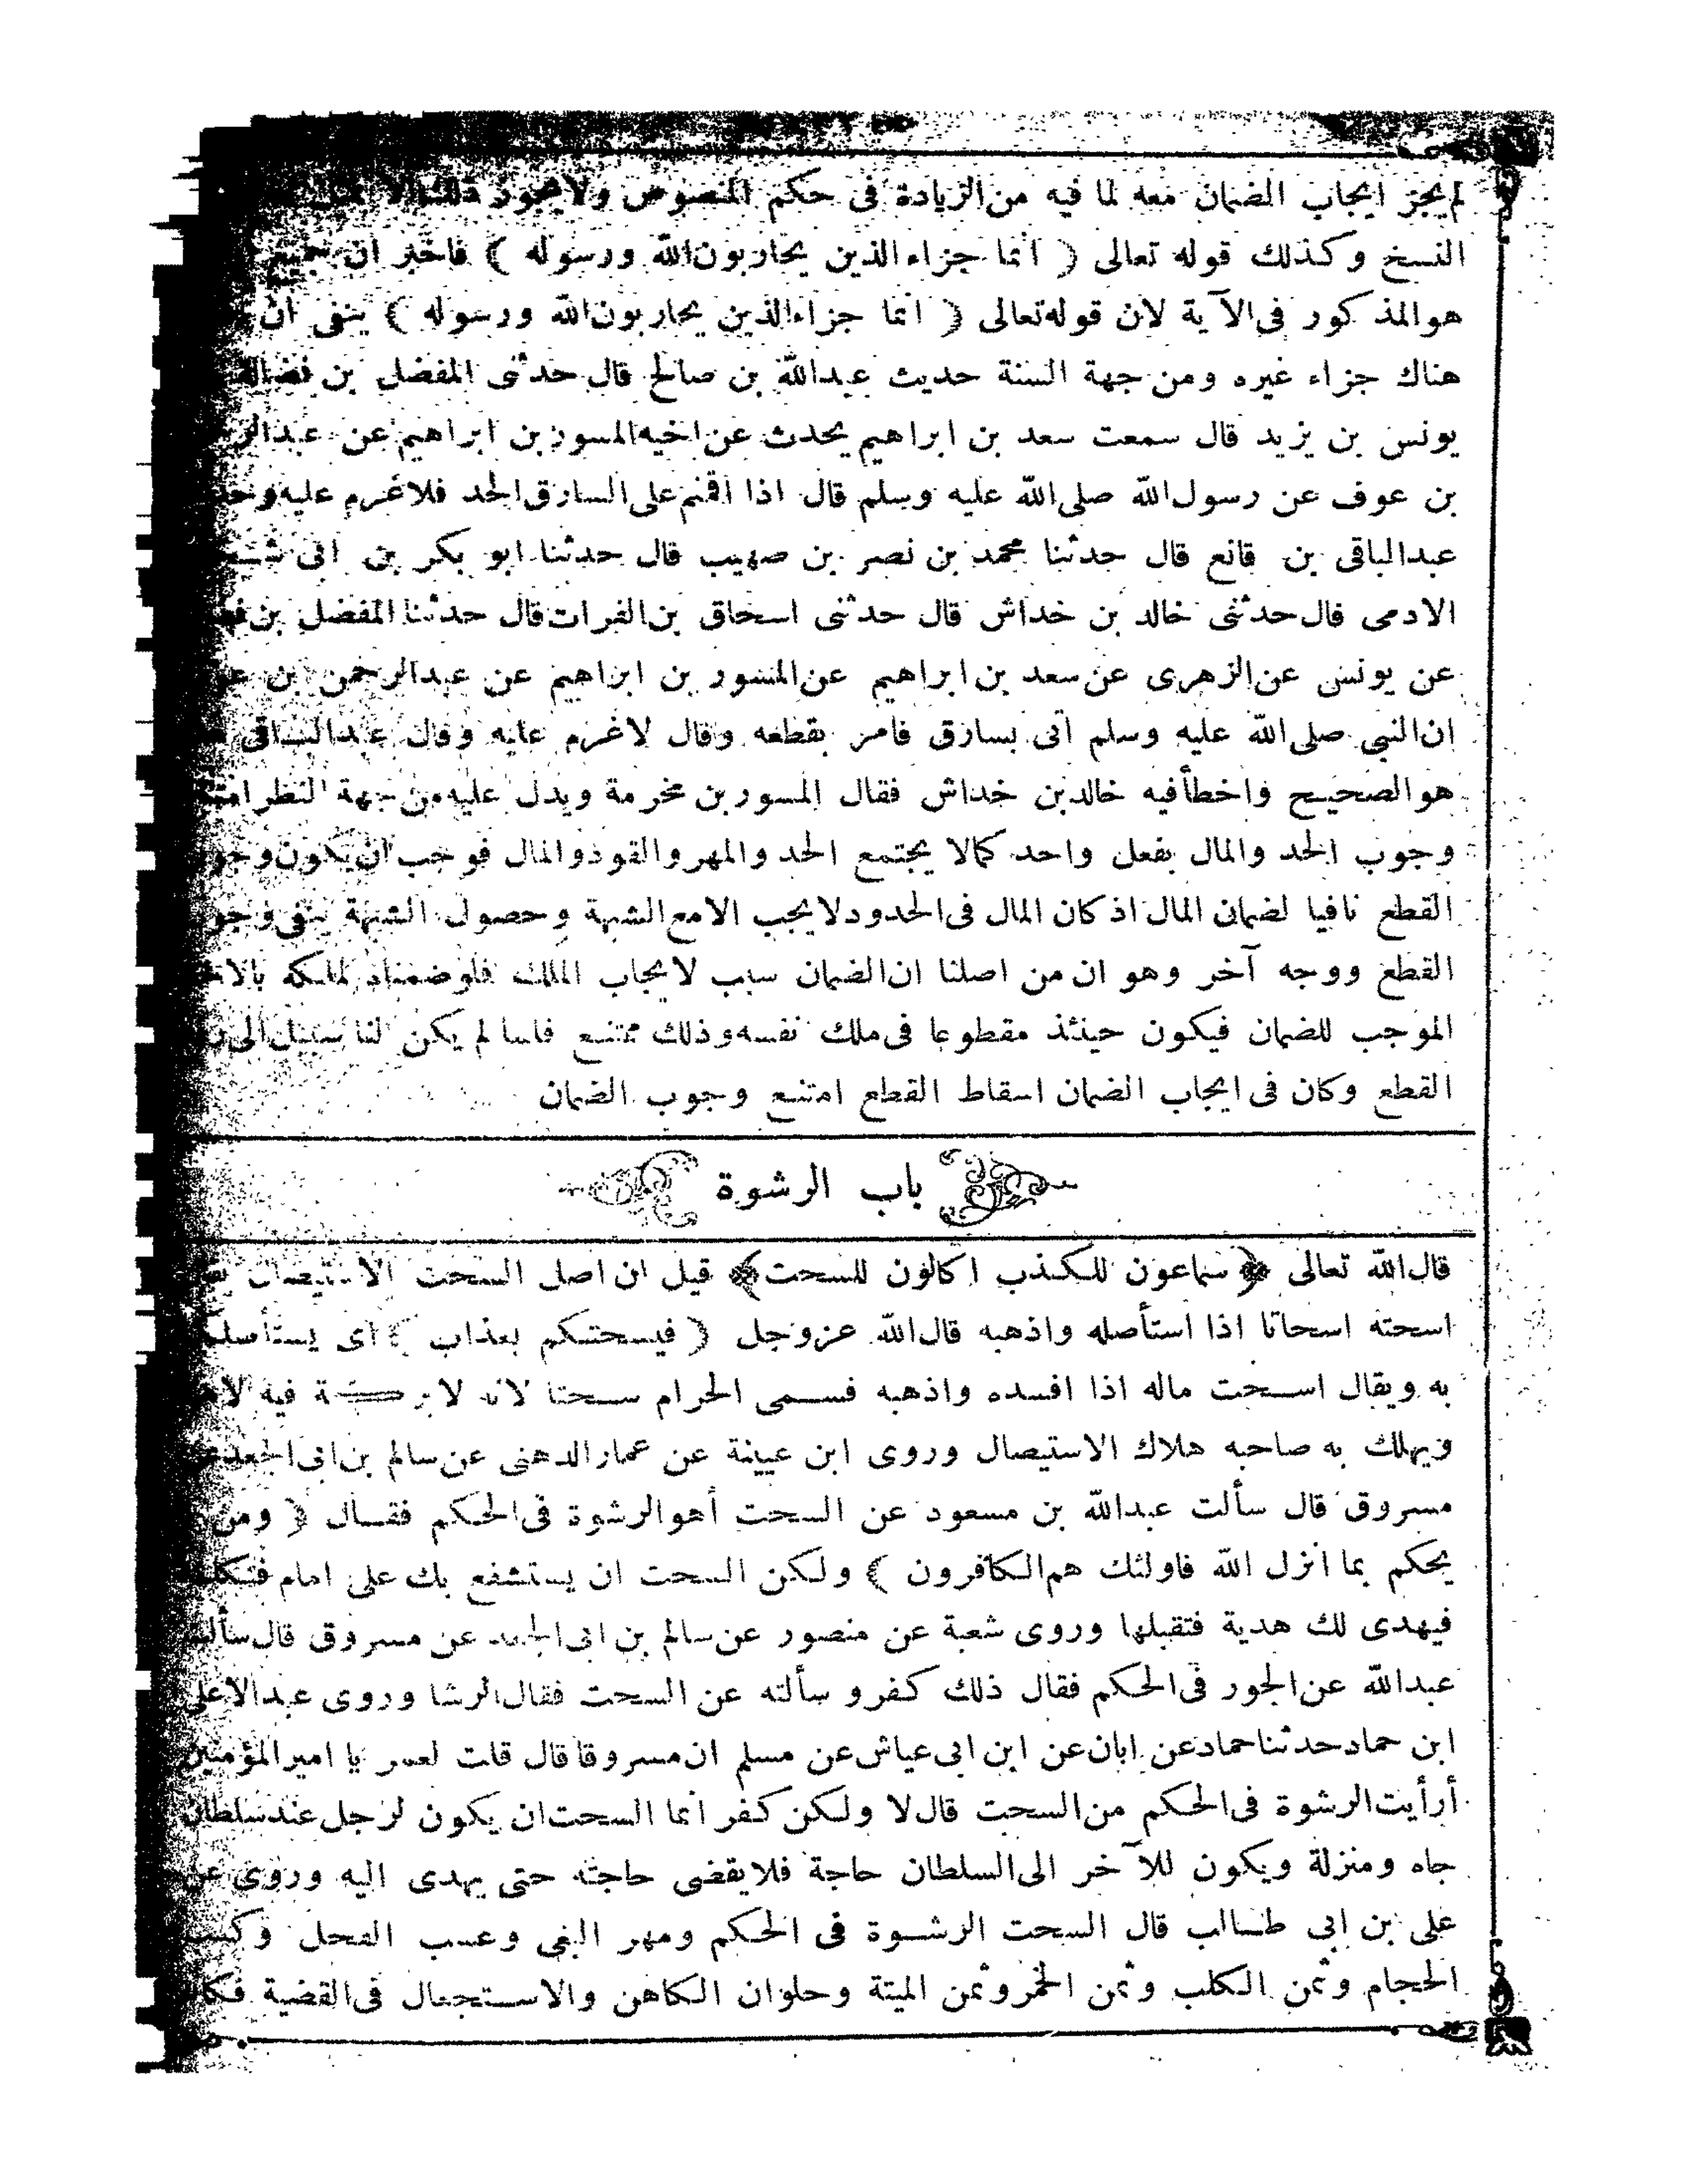 لم يجز ايجاب الضمان معه لما فيه من الزيادة فى حكم المنصوص ولا يجوز ذلك الا
النسخ وكذلك قوله تعالى ﴿ انما جزاء الذين يحاربون الله ورسوله ﴾ فاخبر ان جميع
هو المذكور فى الآية لان قوله تعالى ﴿ انما جزاء الذين يحاربون الله ورسوله ﴾ ينفى ان
هناك جزاء غيره ومن جهة السنة حديث عبدالله بن صالح قال حدثنى المفضل بن فضالة
يونس بن يزيد قال سمعت سعد بن ابراهيم يحدث عن اخيه المسور بن ابراهيم عن
بن عوف عن رسول الله صلى الله عليه وسلم قال اذا اقمتم على السارق الحد فلا غرم عليه
عبدالباقى بن قانع قال حدثنا محمد بن نصر بن صهيب قال حدثنا ابو بكر بن ابى
الادمى قال حدثنى خالد بن خداش قال حدثنى اسحاق بن الفرات قال حدثنا المفضل بن
عن يونس عن الزهرى عن سعد بن ابراهيم عن المسور بن ابراهيم عن عبدالرحمن بن
ان النبى صلى الله عليه وسلم اتى بسارق فامر بقطعه وقال لا غرم عليه وقال عبدالباقى
هو الصحيح واخطأ فيه خالد بن خداش فقال المسور بن مخرمة ويدل عليه من جهة النظر
وجوب الحد والمال بفعل واحد كما لا يجتمع الحد والمهر والقود والمال فوجب ان يكون
القطع نافيا لضمان المال اذ كان المال فى الحدود لا يجب الا مع الشبهة وحصول الشبهة ينفى
القطع ووجه آخر وهو ان من اصلنا ان الضمان سبب لايجاب الملك فلو ضمناه لملكه
الموجب للضمان فيكون حينئذ مقطوعا فى ملك نفسه وذلك ممتنع فلما لم يكن لنا سبيل الى
القطع وكان فى ايجاب الضمان اسقاط القطع امتنع وجوب الضمان
باب الرشوة
قال الله تعالى ﴿سماعون للكذب اكالون للسحت﴾ قيل ان اصل السحت الاستيصال
اسحته اسحاتا اذا استأصله واذهبه قال الله عزوجل ﴿ فيسحتكم بعذاب ﴾ اى
به ويقال اسحت ماله اذا افسده واذهبه فسمى الحرام سحتا لانه لا بركة فيه
ويهلك به صاحبه هلاك الاستيصال وروى ابن عيينة عن عمار الدهنى عن سالم بن ابى الجعد
مسروق قال سألت عبدالله بن مسعود عن السحت أهو الرشوة فى الحكم فقال ﴿ ومن
يحكم بما انزل الله فاولئك هم الكافرون ﴾ ولكن السحت ان يستشفع بك على امام
فيهدى لك هدية فتقبلها وروى شعبة عن منصور عن سالم بن ابى الجعد عن مسروق قال سألت
عبدالله عن الجور فى الحكم فقال ذلك كفر و سألته عن السحت فقال الرشا وروى عبدالاعلى
ابن حماد حدثنا حماد عن ابان عن ابن ابى عياش عن مسلم ان مسروقا قال قلت لعمر يا امير المؤمنين
أرأيت الرشوة فى الحكم من السحت قال لا ولكن كفر انما السحت ان يكون لرجل عند سلطان
جاه ومنزلة ويكون للآخر الى السلطان حاجة فلا يقضى حاجته حتى يهدى اليه وروى عن
على بن ابى طالب قال السحت الرشوة فى الحكم ومهر البغى وعسب الفحل وكسب
الحجام وثمن الكلب وثمن الخمر وثمن الميتة وحلوان الكاهن والاستجعال فى القضية